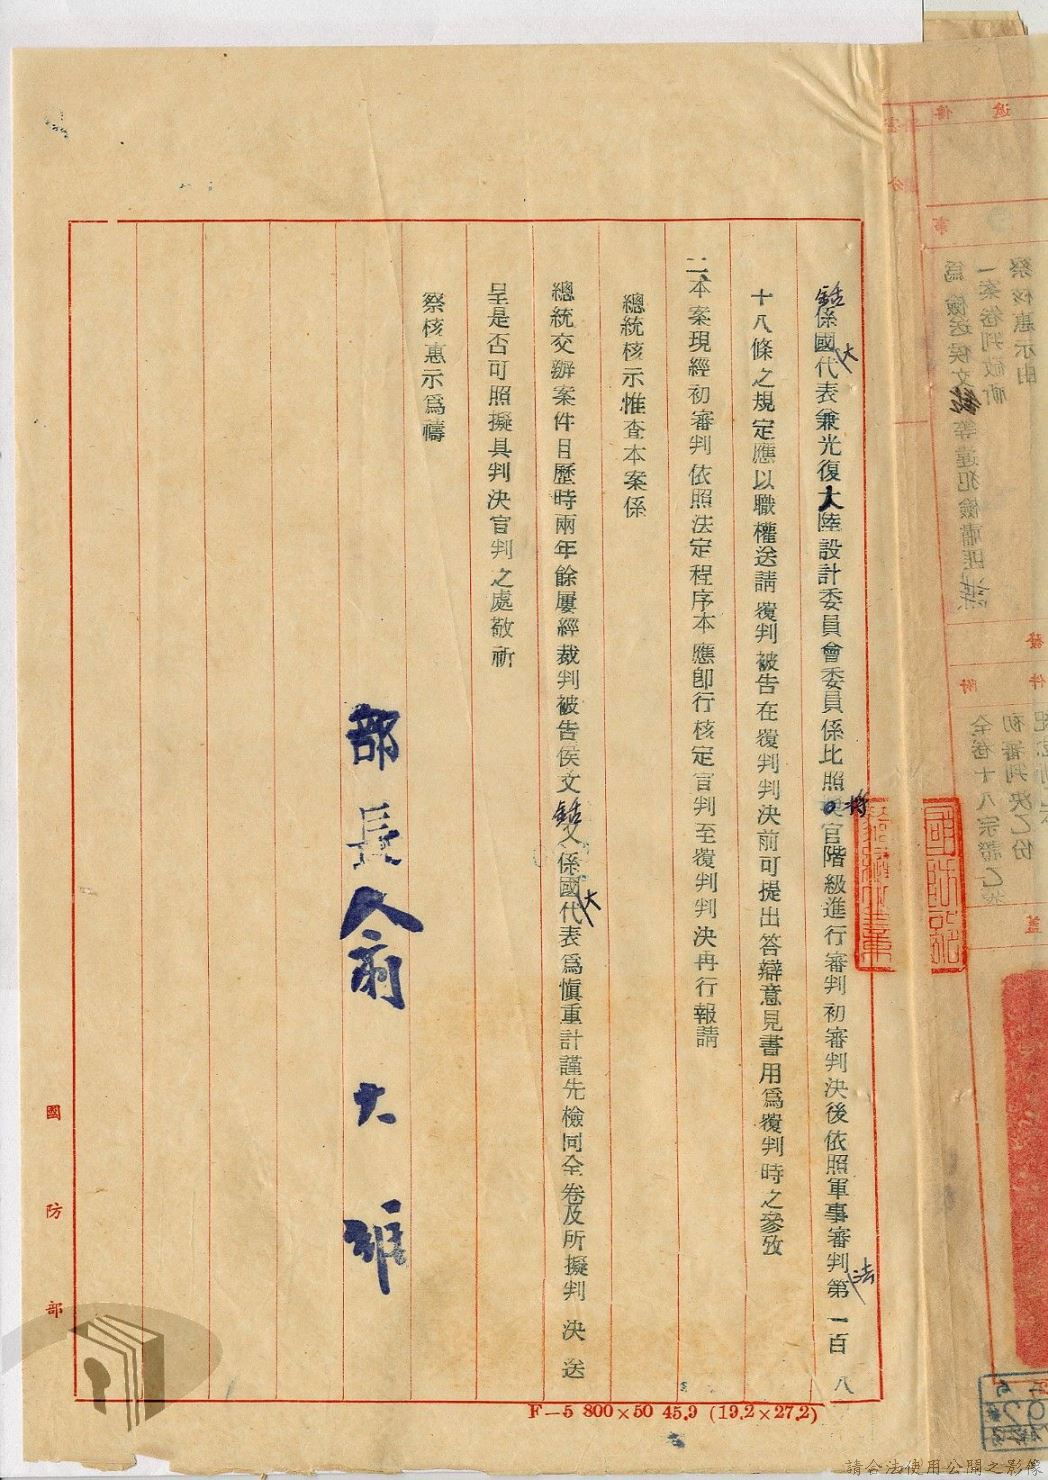 鋕係國大代表兼光復大陸設計委員會委員係比照將官階級進行審判初審判決後依照軍事審判法第一百八
十八條之規定應以職權送請覆判被告在覆判判決前可提出答辯意見書用爲覆判時之參攷
二、本案現經初審判依照法定程序本應卽行核定宣判至覆判判決再行報請
總統核示惟查本案係
總統交辦案件且歷時兩年餘屢經裁判被告侯文鋕又係國大代表爲愼重計謹先檢同全卷及所擬判決送
呈是否可照擬具判決宣判之處敬祈
察核惠示爲禱
部長俞大維
國防部
F—5 800×50 45.9 (19.2×27.2)
請合法使用公開之影像